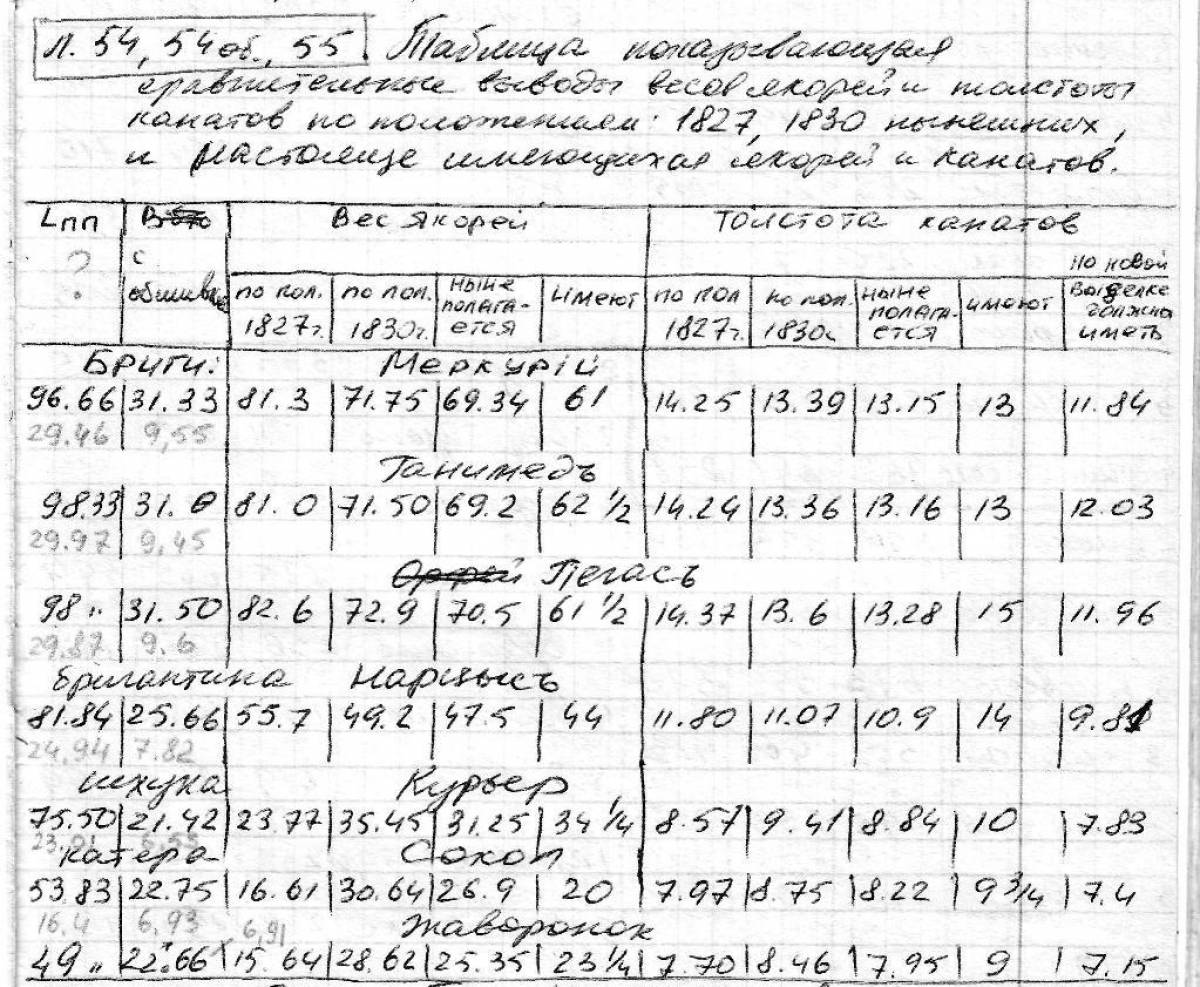 Л. 54, 54 об., 55. Таблица показывающая
сравнительные выводы весов якорей и толстоты
канатов по положением: 1827, 1830 нынешних,
и настояще имеющихся якорей и канатов.
Lпп В Вес якорей Толстота канатов
? с обшивк
по пол. 1827г. по пол. 1830г. ныне полага-ется имеют по пол 1827г. по пол. 1830г. ныне полага-ется имеют по новой выделке должна иметь
Бриги: Меркурiй
96.66 31.33 81.3 71.75 69.34 61 14.25 13.39 13.15 13 11.84
29.46 9,55
Ганимедъ
98.33 31.0 81.0 71.50 69.2 62 1/2 14.24 13.36 13.16 13 12.03
29.97 9,45
Орфей Пегасъ
98 " 31.50 82.6 72.9 70.5 61 1/2 14.37 13.6 13.28 15 11.96
29.87 9.6
бригантина Нарцысъ
81.84 25.66 55.7 49.2 47.5 44 11.80 11.07 10.9 14 9.81
24.94 7.82
шхуна Курьер
75.50 21.42 23.77 35.45 31.25 34 1/4 8.57 9.41 8.84 10 7.83
23.01 6.53
катера Сокол
53.83 22.75 16.61 30.64 26.9 20 7.97 8.75 8.22 9 3/4 7.4
16.4 6,93 6,91
Жаворонок
49 " 22.66 15.64 28.62 25.35 23 1/4 7.70 8.46 7.95 9 7.15